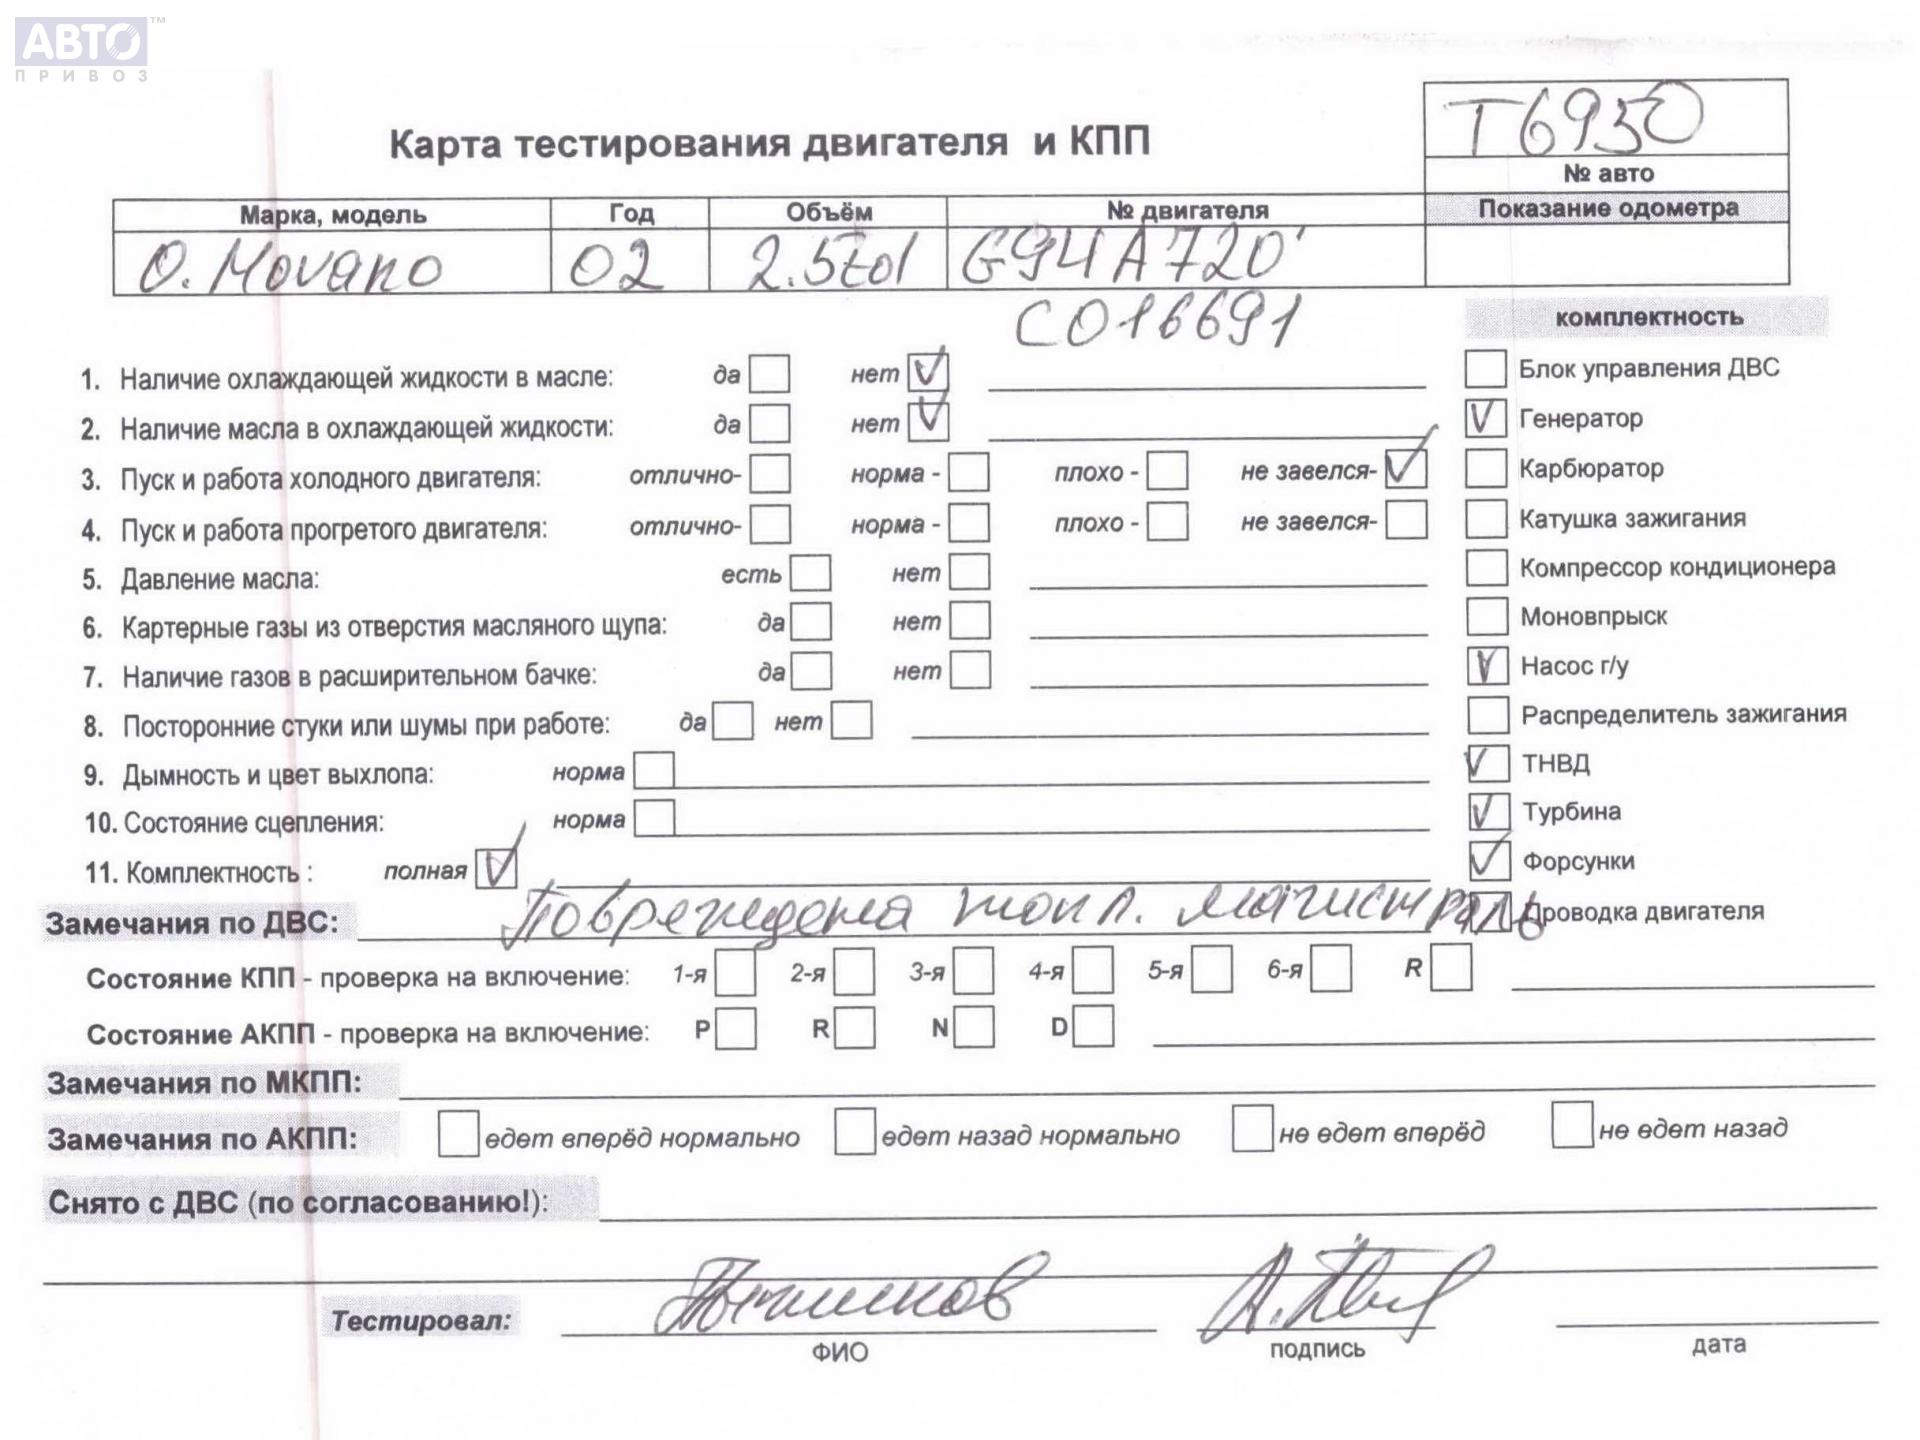 АВТО™
ПРИВОЗ
Карта тестирования двигателя и КПП
Т6950
№ авто
Марка, модель Год Объём № двигателя Показание одометра
O. Movano 02 2.5tdi G94A720'
C016691
комплектность
1. Наличие охлаждающей жидкости в масле: да нет V Блок управления ДВС
2. Наличие масла в охлаждающей жидкости: да нет V V Генератор
3. Пуск и работа холодного двигателя: отлично- норма - плохо - не завелся- V Карбюратор
4. Пуск и работа прогретого двигателя: отлично- норма - плохо - не завелся- Катушка зажигания
5. Давление масла: есть нет Компрессор кондиционера
6. Картерные газы из отверстия масляного щупа: да нет Моновпрыск
7. Наличие газов в расширительном бачке: да нет V Насос г/у
8. Посторонние стуки или шумы при работе: да нет Распределитель зажигания
9. Дымность и цвет выхлопа: норма V ТНВД
10. Состояние сцепления: норма V Турбина
11. Комплектность : полная V V Форсунки
Замечания по ДВС: Повреждена топл. магистраль Проводка двигателя
Состояние КПП - проверка на включение: 1-я 2-я 3-я 4-я 5-я 6-я R
Состояние АКПП - проверка на включение: P R N D
Замечания по МКПП:
Замечания по АКПП: едет вперёд нормально едет назад нормально не едет вперёд не едет назад
Снято с ДВС (по согласованию!):
Тестировал:
ФИО подпись дата